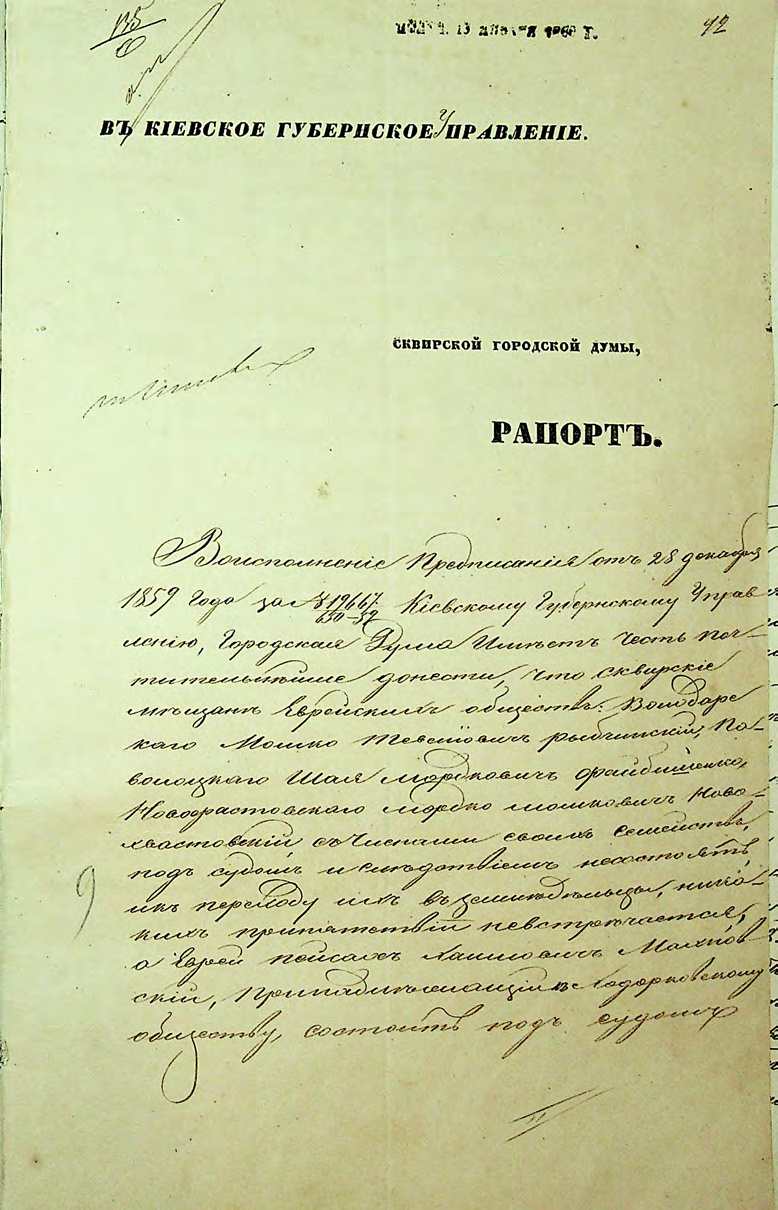 135
6
92
ВЪ КІЕВСКОЕ ГУБЕРНСКОЕ УПРАВЛЕНІЕ.
СКВИРСКОЙ ГОРОДСКОЙ ДУМЫ,
РАПОРТЪ.
Воисполненіе Предписанія отъ 28 декабря
1859 Года за № 19667/630-59 Кіевскому Губернскому Управ-
ленію, Городская Дума Имѣетъ Честь поч-
тительнѣйше донести, что сквирскіе
мѣщане Еврейскихъ обществъ: Володарс
каго Мошко Тевелiовичъ рыбчинскій, Па-
волоцкаго Шая Мордковичъ
Новофастовскаго Мордко Мошковичъ Ново-
хвастовскій съ Числами своихъ Семействъ,
подъ судомъ и слѣдствіемъ несостоятъ
икъ переходу ихъ въ земледѣльцы, ника-
кихъ препятствій невстрѣчается,
а Еврей пейсахъ Хаимовичъ
скій, Принадлежащій къ Ходорковскому
обществу, состоитъ подъ судомъ